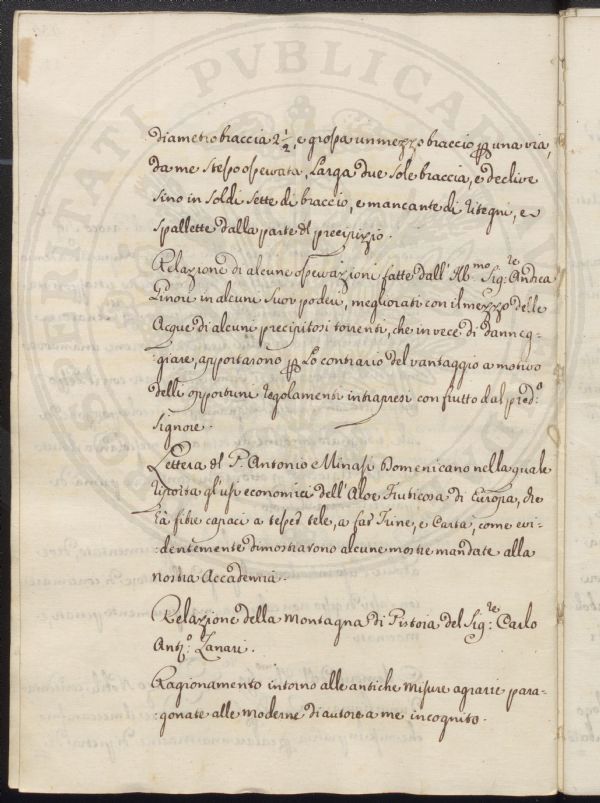 diametro braccia 2½, e grossa un mezzo braccio p una via,
da me stesso osservata, larga due sole braccia, e declive
sino in soldi sette di braccio, e mancante di ritegni, e
spallette dalla parte del precipizio.
Relazione di alcune osservazioni fatte dall'Ill.mo Sig.re Andrea
Ginori in alcuni suoi poderi, megliorati con il mezzo delle
Acque di alcuni precipitosi torrenti, che in vece di danneg-
giare, apportarono p lo contrario del vantaggio a motivo
delli opportuni regolamenti intrapresi con frutto dal pred.o
Signore.
Lettera del P. Antonio Minasi Domenicano nella quale
riporta gl'usi economici dell'Aloe Fruticosa di Europa, che
fibre capaci a tesser tele, a far Trine, e Carta, come evi-
dentemente dimostrarono alcune mostre mandate alla
nostra Accademia.
Relazione della Montagna di Pistoia del Sig.re Carlo
Ant.o Lanari.
Ragionamento intorno alle antiche misure agrarie para-
gonate alle moderne di autore a me incognito.